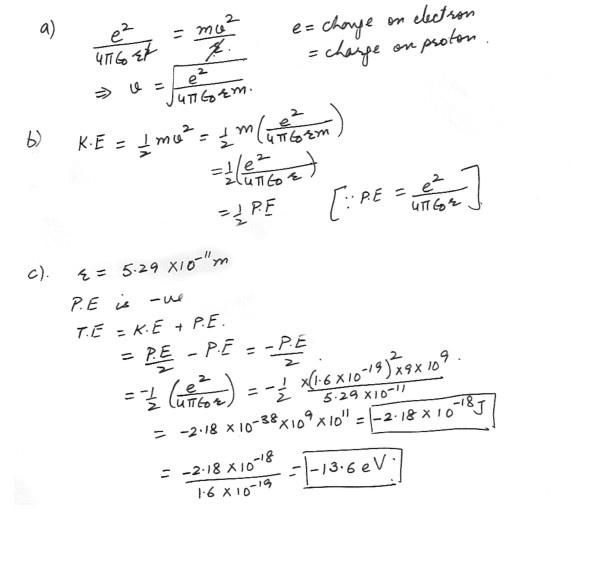 a) e²/4πε₀r² = mv²/r. e = charge on electron
= charge on proton.
⇒ v = √(e²/4πε₀rm).
b) K.E = ½mv² = ½m(e²/4πε₀rm)
= ½(e²/4πε₀r)
= ½ P.E [∵ P.E = e²/4πε₀r]
c). r = 5.29 X10⁻¹¹m
P.E is -ve
T.E = K.E + P.E.
= P.E/2 - P.E = -P.E/2.
= -½(e²/4πε₀r) = -½ x(1.6 x10⁻¹⁹)²x9x 10⁹/5.29 x10⁻¹¹.
= -2.18 x10⁻³⁸x10⁹x10¹¹ = -2.18 x 10⁻¹⁸J
= -2.18 x10⁻¹⁸/1.6 x10⁻¹⁹ = -13.6 eV.